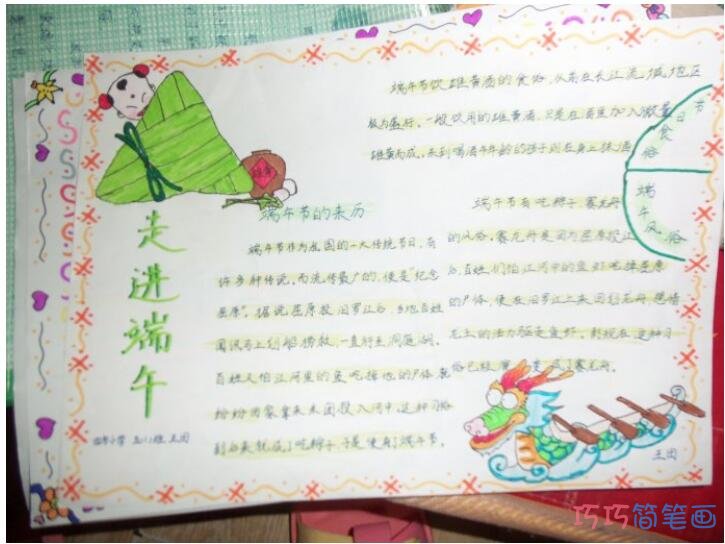 走进端午
端午节的来历
端午节作为祖国的一大传统节日，有
许多种传说。而流传最广的，便是“纪念
屈原”。据说屈原投汨罗江后，当地百姓
闻讯马上划船捞救，一直行至洞庭湖。
百姓又怕江河里的鱼吃掉他的尸体，就
纷纷回家拿来米团投入河中，这种习俗
到后来就成了吃粽子，于是便有了端午节。
端午节饮雄黄酒的食俗，从前在长江流域地区
极为盛行。一般饮用的雄黄酒，只是在酒里加入微量
雄黄而成。
节日食俗
端午风俗
端午节有吃粽子，赛龙舟
的风俗。赛龙舟是因为屈原投江
后，百姓们怕江河中的鱼虾吃掉屈原
的尸体，便在汨罗江上来回划龙舟，
王团
巧巧简笔画